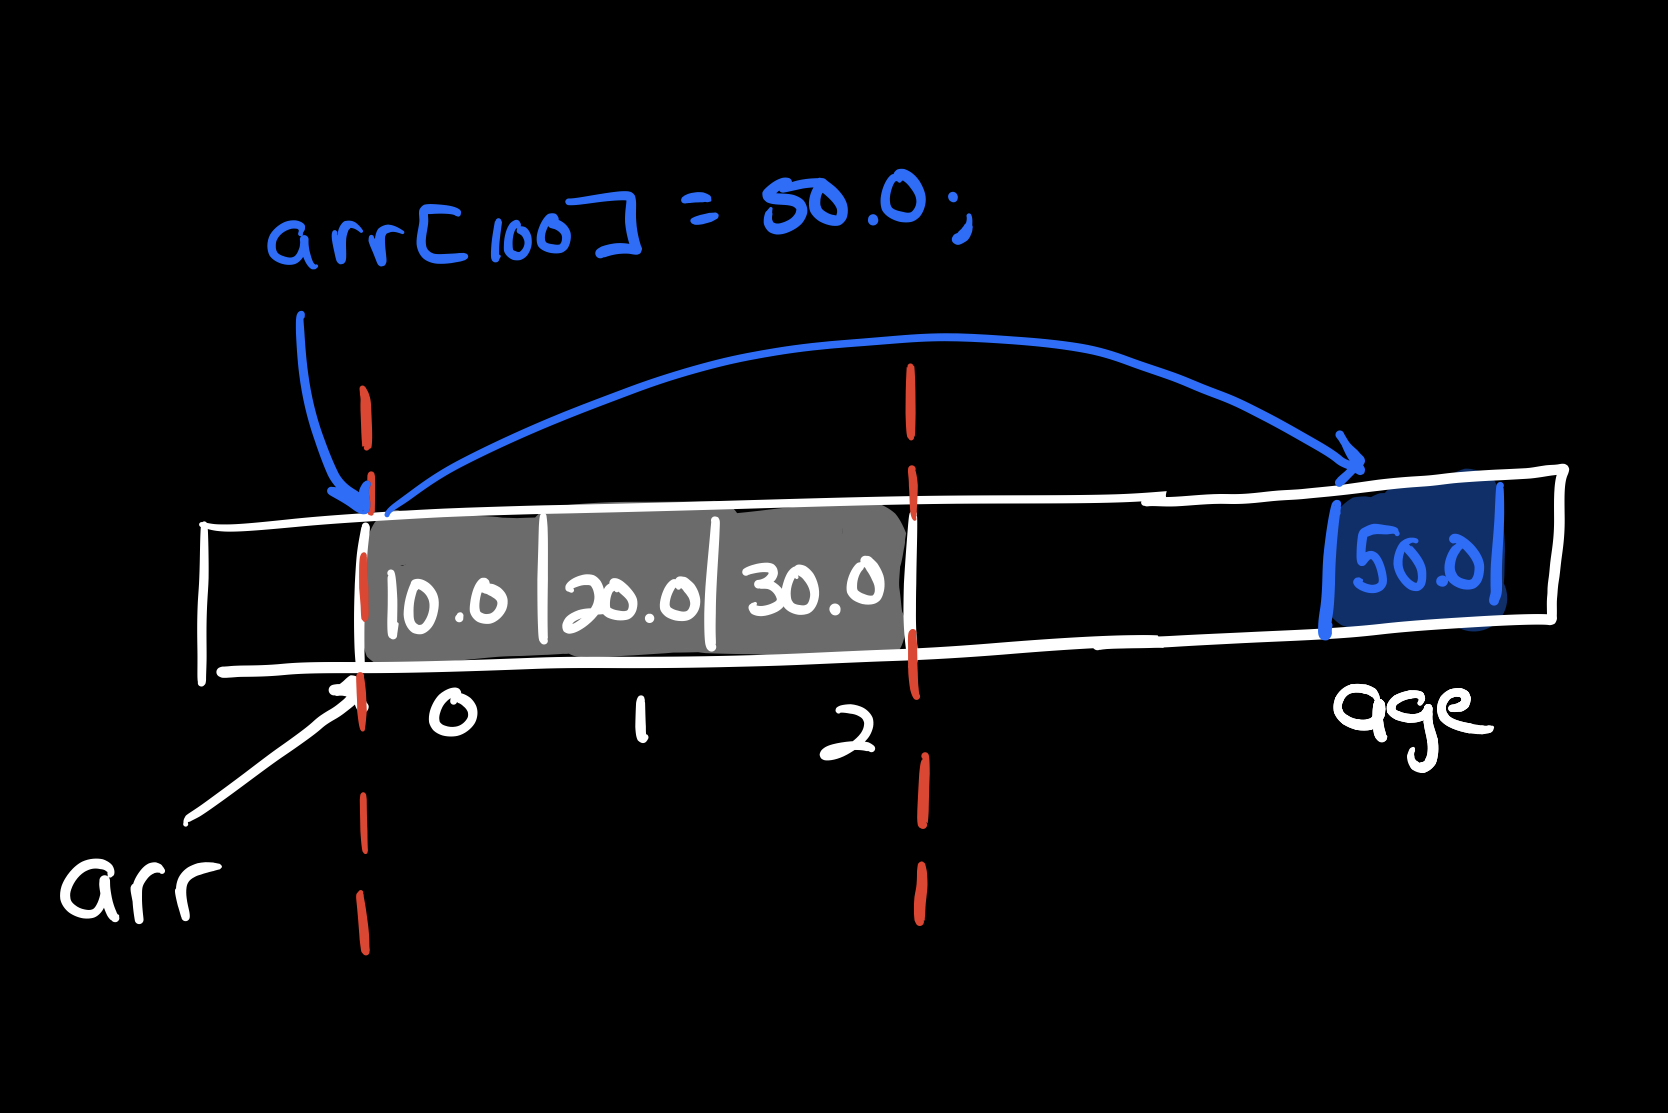 arr[100] = 50.0;
10.0 20.0 30.0 50.0
0 1 2 age
arr